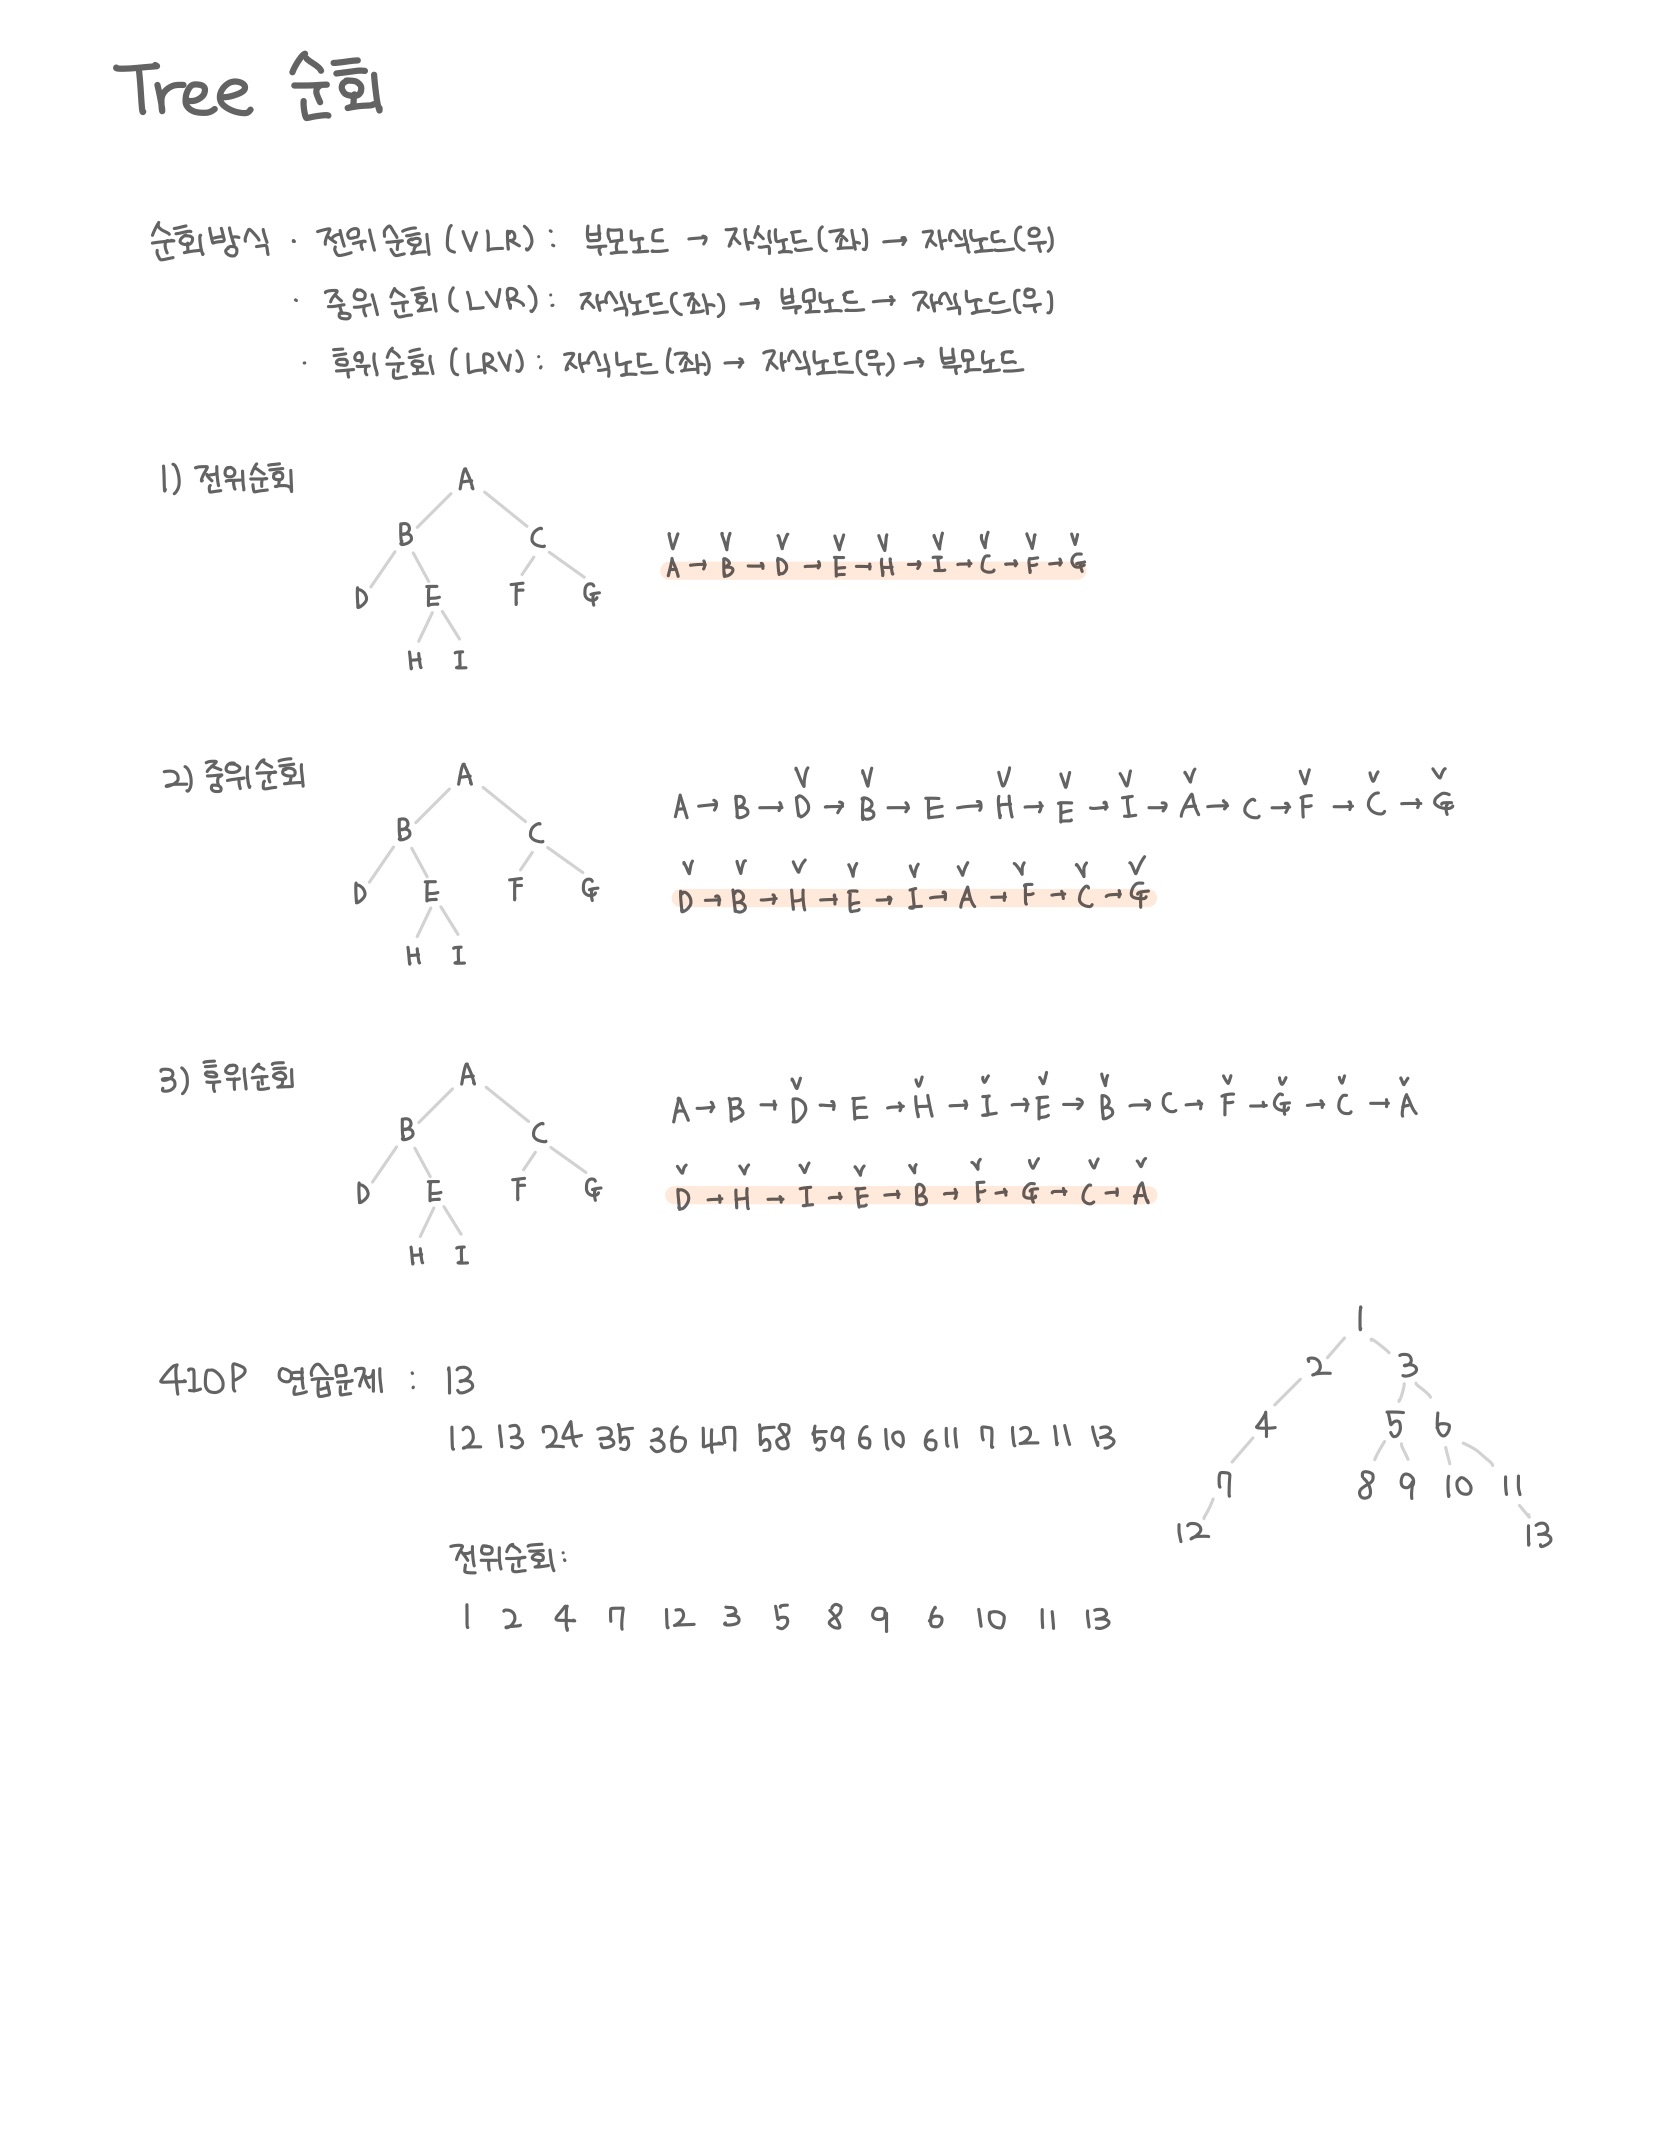 Tree 순회
순회방식 · 전위 순회 (VLR) : 부모노드 → 자식노드(좌) → 자식노드(우)
· 중위 순회 (LVR) : 자식노드(좌) → 부모노드 → 자식노드(우)
· 후위 순회 (LRV) : 자식노드 (좌) → 자식노드(우) → 부모노드
1) 전위순회
A
B C
D E F G
H I
V V V V V V V V V
A → B → D → E → H → I → C → F → G
2) 중위순회
A
B C
D E F G
H I
V V V V V V V V V
A → B → D → B → E → H → E → I → A → C → F → C → G
V V V V V V V V V
D → B → H → E → I → A → F → C → G
3) 후위순회
A
B C
D E F G
H I
V V V V V V V V V
A → B → D → E → H → I → E → B → C → F → G → C → A
V V V V V V V V V
D → H → I → E → B → F → G → C → A
410P 연습문제 : 13
12 13 24 35 36 47 58 59 6 10 6 11 7 12 11 13
1
2 3
4 5 6
7 8 9 10 11
12 13
전위순회:
1 2 4 7 12 3 5 8 9 6 10 11 13